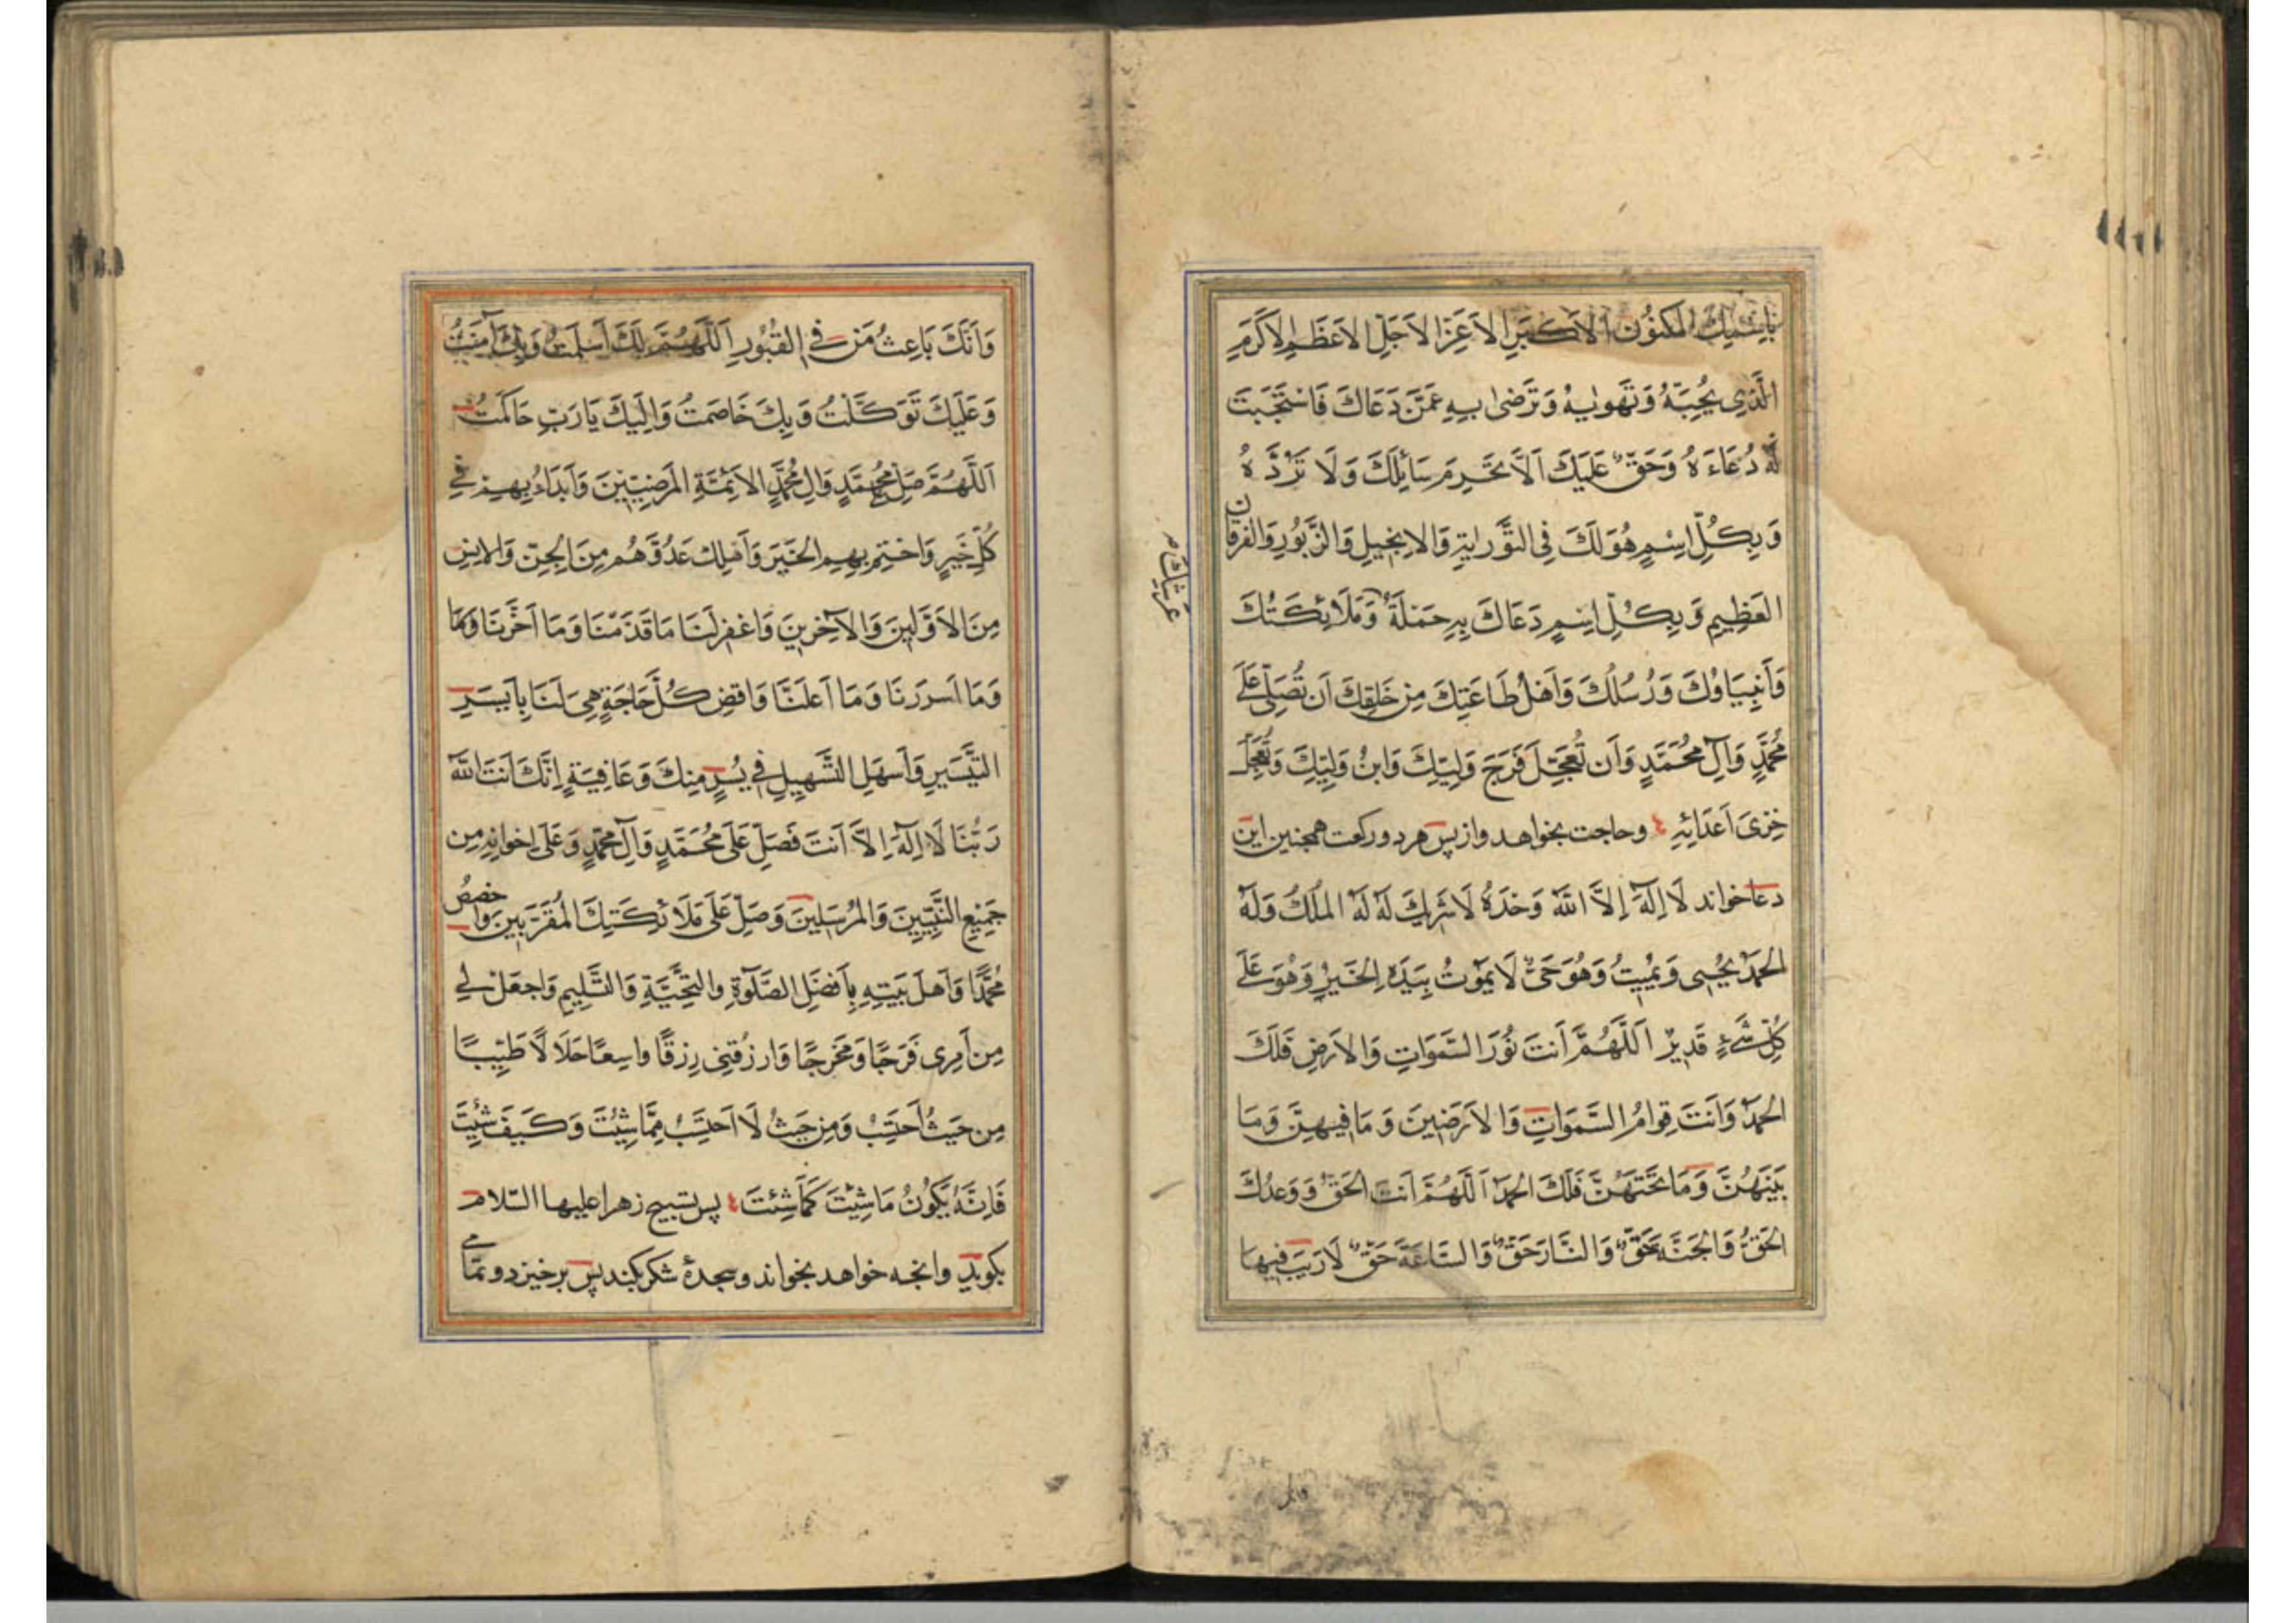 بِاسْمِكَ الْمَكْنُونِ الْاَكْبَرِ الْاَعَزِّ الْاَجَلِّ الْاَعْظَمِ الْاَكْرَمِ
الَّذِی تُحِبُّهُ وَتَهْوٰیهُ وَتَرْضٰی بِهِ عَمَّنْ دَعَاكَ فَاسْتَجَبْتَ
لَهُ دُعَاءَهُ وَحَقٌّ عَلَیْكَ اَلَّا تَحْرِمَ سَائِلَكَ وَلَا تَرُدَّهُ
وَبِكُلِّ اِسْمٍ هُوَ لَكَ فِی التَّوْرٰیةِ وَالْاِنْجِیلِ وَالزَّبُورِ وَالْفُرْقَانِ
الْعَظِیمِ وَبِكُلِّ اِسْمٍ دَعَاكَ بِهِ حَمَلَةُ وَمَلَائِكَتُكَ
عَرْشِكَ
وَاَنْبِیَاؤُكَ وَرُسُلُكَ وَاَهْلُ طَاعَتِكَ مِنْ خَلْقِكَ اَنْ تُصَلِّیَ عَلَی
مُحَمَّدٍ وَآلِ مُحَمَّدٍ وَاَنْ تُعَجِّلَ فَرَجَ وَلِیِّكَ وَابْنِ وَلِیِّكَ وَتُعَجِّلَ
خِزْیَ اَعْدَائِهِ وحاجت بخواهد واز پس هر دو ركعت همچنین این
دعا خواند لَا اِلٰهَ اِلَّا اللّٰهُ وَحْدَهُ لَا شَرِیكَ لَهُ لَهُ الْمُلْكُ وَلَهُ
الْحَمْدُ یُحْیِی وَیُمِیتُ وَهُوَ حَیٌّ لَا یَمُوتُ بِیَدِهِ الْخَیْرُ وَهُوَ عَلَی
كُلِّ شَیْءٍ قَدِیرٌ اَللّٰهُمَّ اَنْتَ نُورُ السَّمَوَاتِ وَالْاَرْضِ فَلَكَ
الْحَمْدُ وَاَنْتَ قِوَامُ السَّمَوَاتِ وَالْاَرَضِینَ وَمَا فِیهِنَّ وَمَا
بَیْنَهُنَّ وَمَا تَحْتَهُنَّ فَلَكَ الْحَمْدُ اَللّٰهُمَّ اَنْتَ الْحَقُّ وَوَعْدُكَ
الْحَقُّ وَالْجَنَّةُ حَقٌّ وَالنَّارُ حَقٌّ وَالسَّاعَةُ حَقٌّ لَا رَیْبَ فِیهَا
وَاَنَّكَ بَاعِثُ مَنْ فِی الْقُبُورِ اَللّٰهُمَّ لَكَ اَسْلَمْتُ وَبِكَ آمَنْتُ
وَعَلَیْكَ تَوَكَّلْتُ وَبِكَ خَاصَمْتُ وَاِلَیْكَ یَا رَبِّ حَاكَمْتُ
اَللّٰهُمَّ صَلِّ مُحَمَّدٍ وَآلِ مُحَمَّدٍ الْاَئِمَّةِ الْمَرْضِیِّینَ وَابْدَاْ بِهِمْ فِی
كُلِّ خَیْرٍ وَاخْتِمْ بِهِمِ الْخَیْرَ وَاَهْلِكْ عَدُوَّهُمْ مِنَ الْجِنِّ وَالْاِنْسِ
مِنَ الْاَوَّلِینَ وَالْآخِرِینَ وَاغْفِرْ لَنَا مَا قَدَّمْنَا وَمَا اَخَّرْنَا
وَمَا اَسْرَرْنَا وَمَا اَعْلَنَّا وَاقْضِ كُلَّ حَاجَةٍ هِیَ لَنَا بِاَیْسَرِ
التَّیْسِیرِ وَاَسْهَلِ التَّسْهِیلِ فِی یُسْرٍ مِنْكَ وَعَافِیَةٍ اِنَّكَ اَنْتَ اللّٰهُ
رَبُّنَا لَا اِلٰهَ اِلَّا اَنْتَ فَصَلِّ عَلَی مُحَمَّدٍ وَآلِ مُحَمَّدٍ وَعَلَی اِخْوَانِهِ مِنْ
جَمِیعِ النَّبِیِّینَ وَالْمُرْسَلِینَ وَصَلِّ عَلَی مَلَائِكَتِكَ الْمُقَرَّبِینَ وَاخْصُصْ
مُحَمَّدًا وَاَهْلَ بَیْتِهِ بِاَفْضَلِ الصَّلٰوةِ وَالتَّحِیَّةِ وَالتَّسْلِیمِ وَاجْعَلْ لِی
مِنْ اَمْرِی فَرَجًا وَمَخْرَجًا وَارْزُقْنِی رِزْقًا وَاسِعًا حَلَالًا طَیِّبًا
مِنْ حَیْثُ اَحْتَسِبُ وَمِنْ حَیْثُ لَا اَحْتَسِبُ مِمَّا شِئْتَ وَكَیْفَ شِئْتَ
فَاِنَّهُ یَكُونُ مَا شِئْتَ كَمَا شِئْتَ پس تسبیح زهرا علیها السّلام
بكوید وانچه خواهد بخواند وسجدۀ شكر بكند پس برخیزد و تمامی